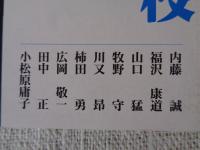 校
内藤　誠
福沢　康道
山口　猛
牧野　守
川又　昂
柿田　勇
広岡　敬一
田中　正
小松原庸子